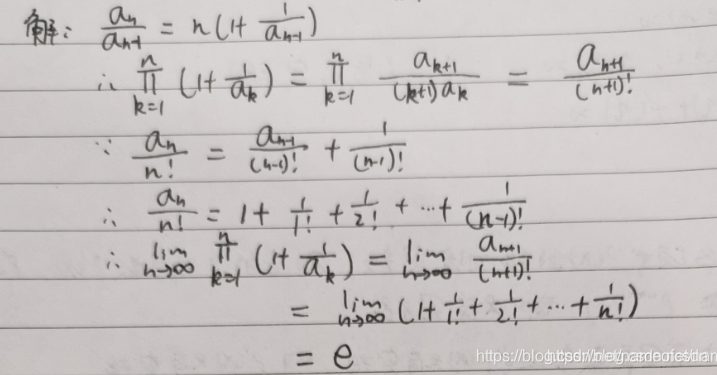 解: a_n/a_{n-1} = n(1+1/a_{n-1})
∴ ∏_{k=1}^{n} (1+1/a_k) = ∏_{k=1}^{n} a_{k+1}/((k+1)a_k) = a_{n+1}/(n+1)!
∵ a_n/n! = a_{n-1}/(n-1)! + 1/(n-1)!
∴ a_n/n! = 1 + 1/1! + 1/2! + ⋯ + 1/(n-1)!
∴ lim_{n→∞} ∏_{k=1}^{n} (1+1/a_k) = lim_{n→∞} a_{n+1}/(n+1)!
= lim_{n→∞} (1+1/1!+1/2!+⋯+1/n!)
= e